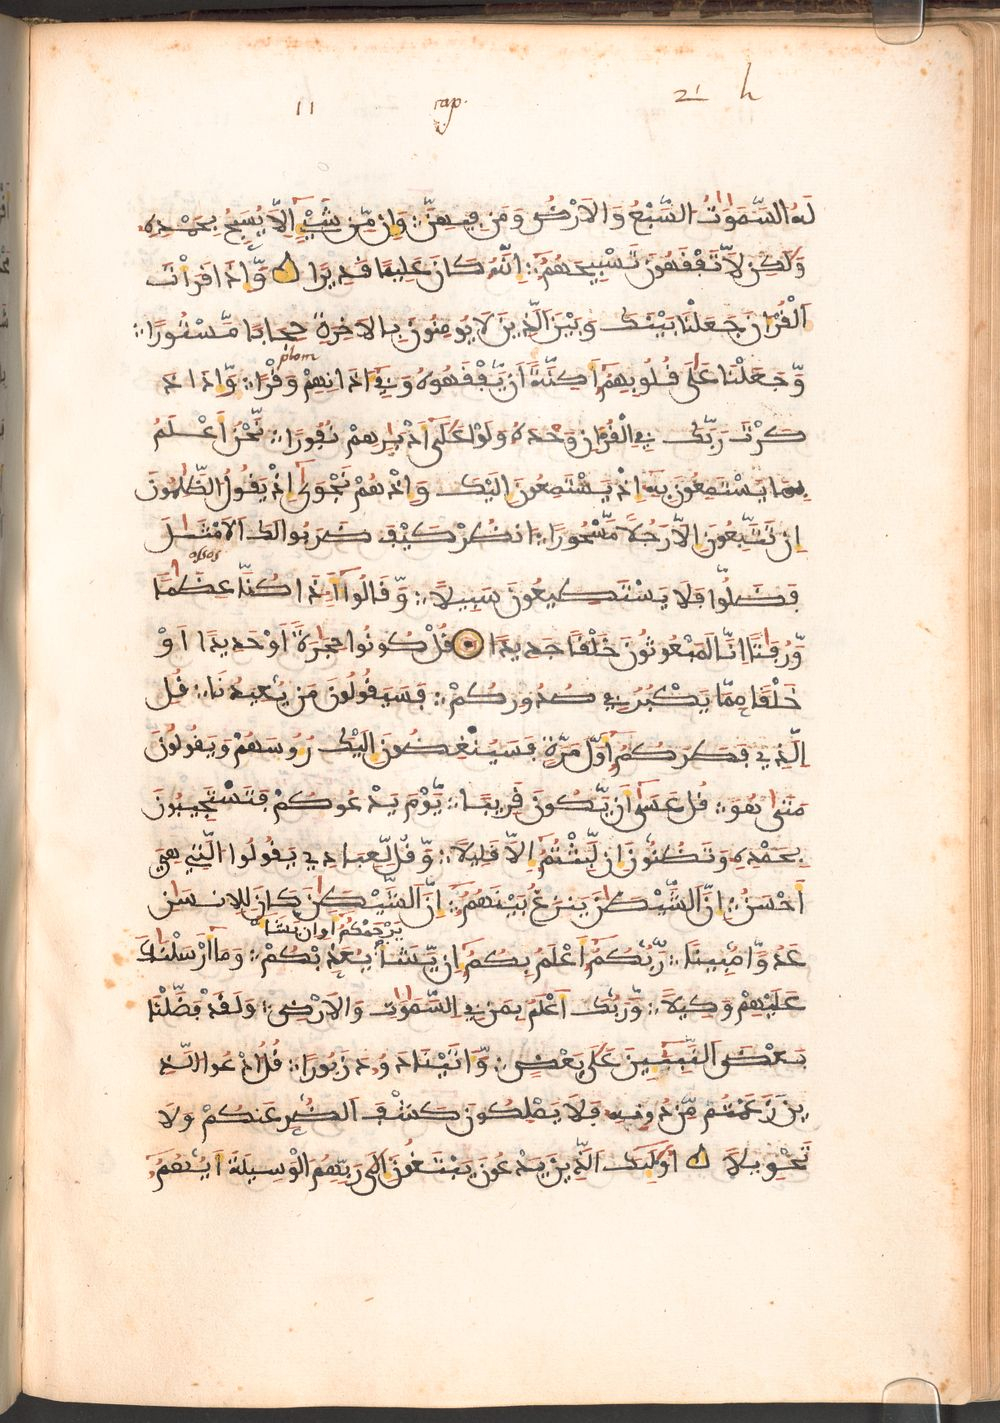 11 cap. 21 h
لَهُ السَّمَوَٰتُ السَّبْعُ وَالاَرْضُ وَمَن فِيهِنَّ وَإِن مِّن شَيْءٍ اِلاَّ يُسَبِّحُ بِحَمْدِهِ
وَلَكِن لاَّ تَفْقَهُونَ تَسْبِيحَهُمُ إِنَّهُ كَانَ عَلِيمًا قَدِيرًا وَّإِذَا قَرَأْتَ
اَلْقُرْءَانَ جَعَلْنَا بَيْنَكَ وَبَيْنَ الَّذِينَ لَا يُومِنُونَ بِالاَخِرَةِ حِجَابًا مَّسْتُورًا
plom
وَّجَعَلْنَا عَلَى قُلُوبِهِمُ أَكِنَّةً اَنْ يَّفْقَهُوهُ وَفِي ءَاذَانِهِمْ وَقْرًا وَّإِذَا ذَ
كَرْتَ رَبَّكَ فِي الْقُرْءَانِ وَحْدَهُ وَلَّوْا عَلَى أَدْبَٰرِهِمْ نُفُورًا نَّحْنُ أَعْلَمُ
بِمَا يَسْتَمِعُونَ بِهِ إِذْ يَسْتَمِعُونَ إِلَيْكَ وَإِذْ هُمْ نَجْوَى إِذْ يَقُولُ الظَّٰلِمُونَ
إِن تَتَّبِعُونَ إِلاَّ رَجُلاً مَّسْحُورًا انظُرْ كَيْفَ ضَرَبُوا لَكَ الاَمْثَٰلَ
ossos
فَضَلُّوا فَلَا يَسْتَطِيعُونَ سَبِيلاً وَّقَالُوا أَءِذَا كُنَّا عِظَٰمًا
وَّرُفَٰتًا اِنَّا لَمَبْعُوثُونَ خَلْقًا جَدِيدًا قُلْ كُونُوا حِجَرَةً اَوْ حَدِيدًا اَوْ
خَلْقًا مِمَّا يَكْبُرُ فِي صُدُورِكُمْ فَسَيَقُولُونَ مَن يُّعِيدُنَا قُلِ
الَّذِي فَطَرَكُمُ أَوَّلَ مَرَّةٍ فَسَيُنْغِضُونَ إِلَيْكَ رُءُوسَهُمْ وَيَقُولُونَ
مَتَى هُوَ قُلْ عَسَى أَنْ يَّكُونَ قَرِيبًا يَّوْمَ يَدْعُوكُمْ فَتَسْتَجِيبُونَ
بِحَمْدِهِ وَتَظُنُّونَ إِن لَّبِثْتُمُ إِلاَّ قَلِيلاً وَّقُل لِّعِبَادِي يَقُولُوا الَّتِي هِيَ
أَحْسَنُ إِنَّ الشَّيْطَٰنَ يَنزَغُ بَيْنَهُمُ إِنَّ الشَّيْطَٰنَ كَانَ لِلاِنسَٰنِ
يَرْحَمْكُمُ أَوْ اِن يَّشَأْ
عَدُوًّا مُّبِينًا رَّبُّكُمُ أَعْلَمُ بِكُمُ إِنْ يَّشَأْ يُعَذِّبْكُمْ وَمَا أَرْسَلْنَٰكَ
عَلَيْهِمْ وَكِيلاً وَّرَبُّكَ أَعْلَمُ بِمَن فِي السَّمَٰوَٰتِ وَالاَرْضِ وَلَقَدْ فَضَّلْنَا
بَعْضَ النَّبِيِّينَ عَلَى بَعْضٍ وَّءَاتَيْنَا دَاوُدَ زَبُورًا قُلُ ادْعُوا الَّذِ
ينَ زَعَمْتُم مِّن دُونِهِ فَلَا يَمْلِكُونَ كَشْفَ الضُّرِّ عَنكُمْ وَلَا
تَحْوِيلاً أُولَٰئِكَ الَّذِينَ يَدْعُونَ يَبْتَغُونَ إِلَى رَبِّهِمُ الْوَسِيلَةَ أَيُّهُمُ